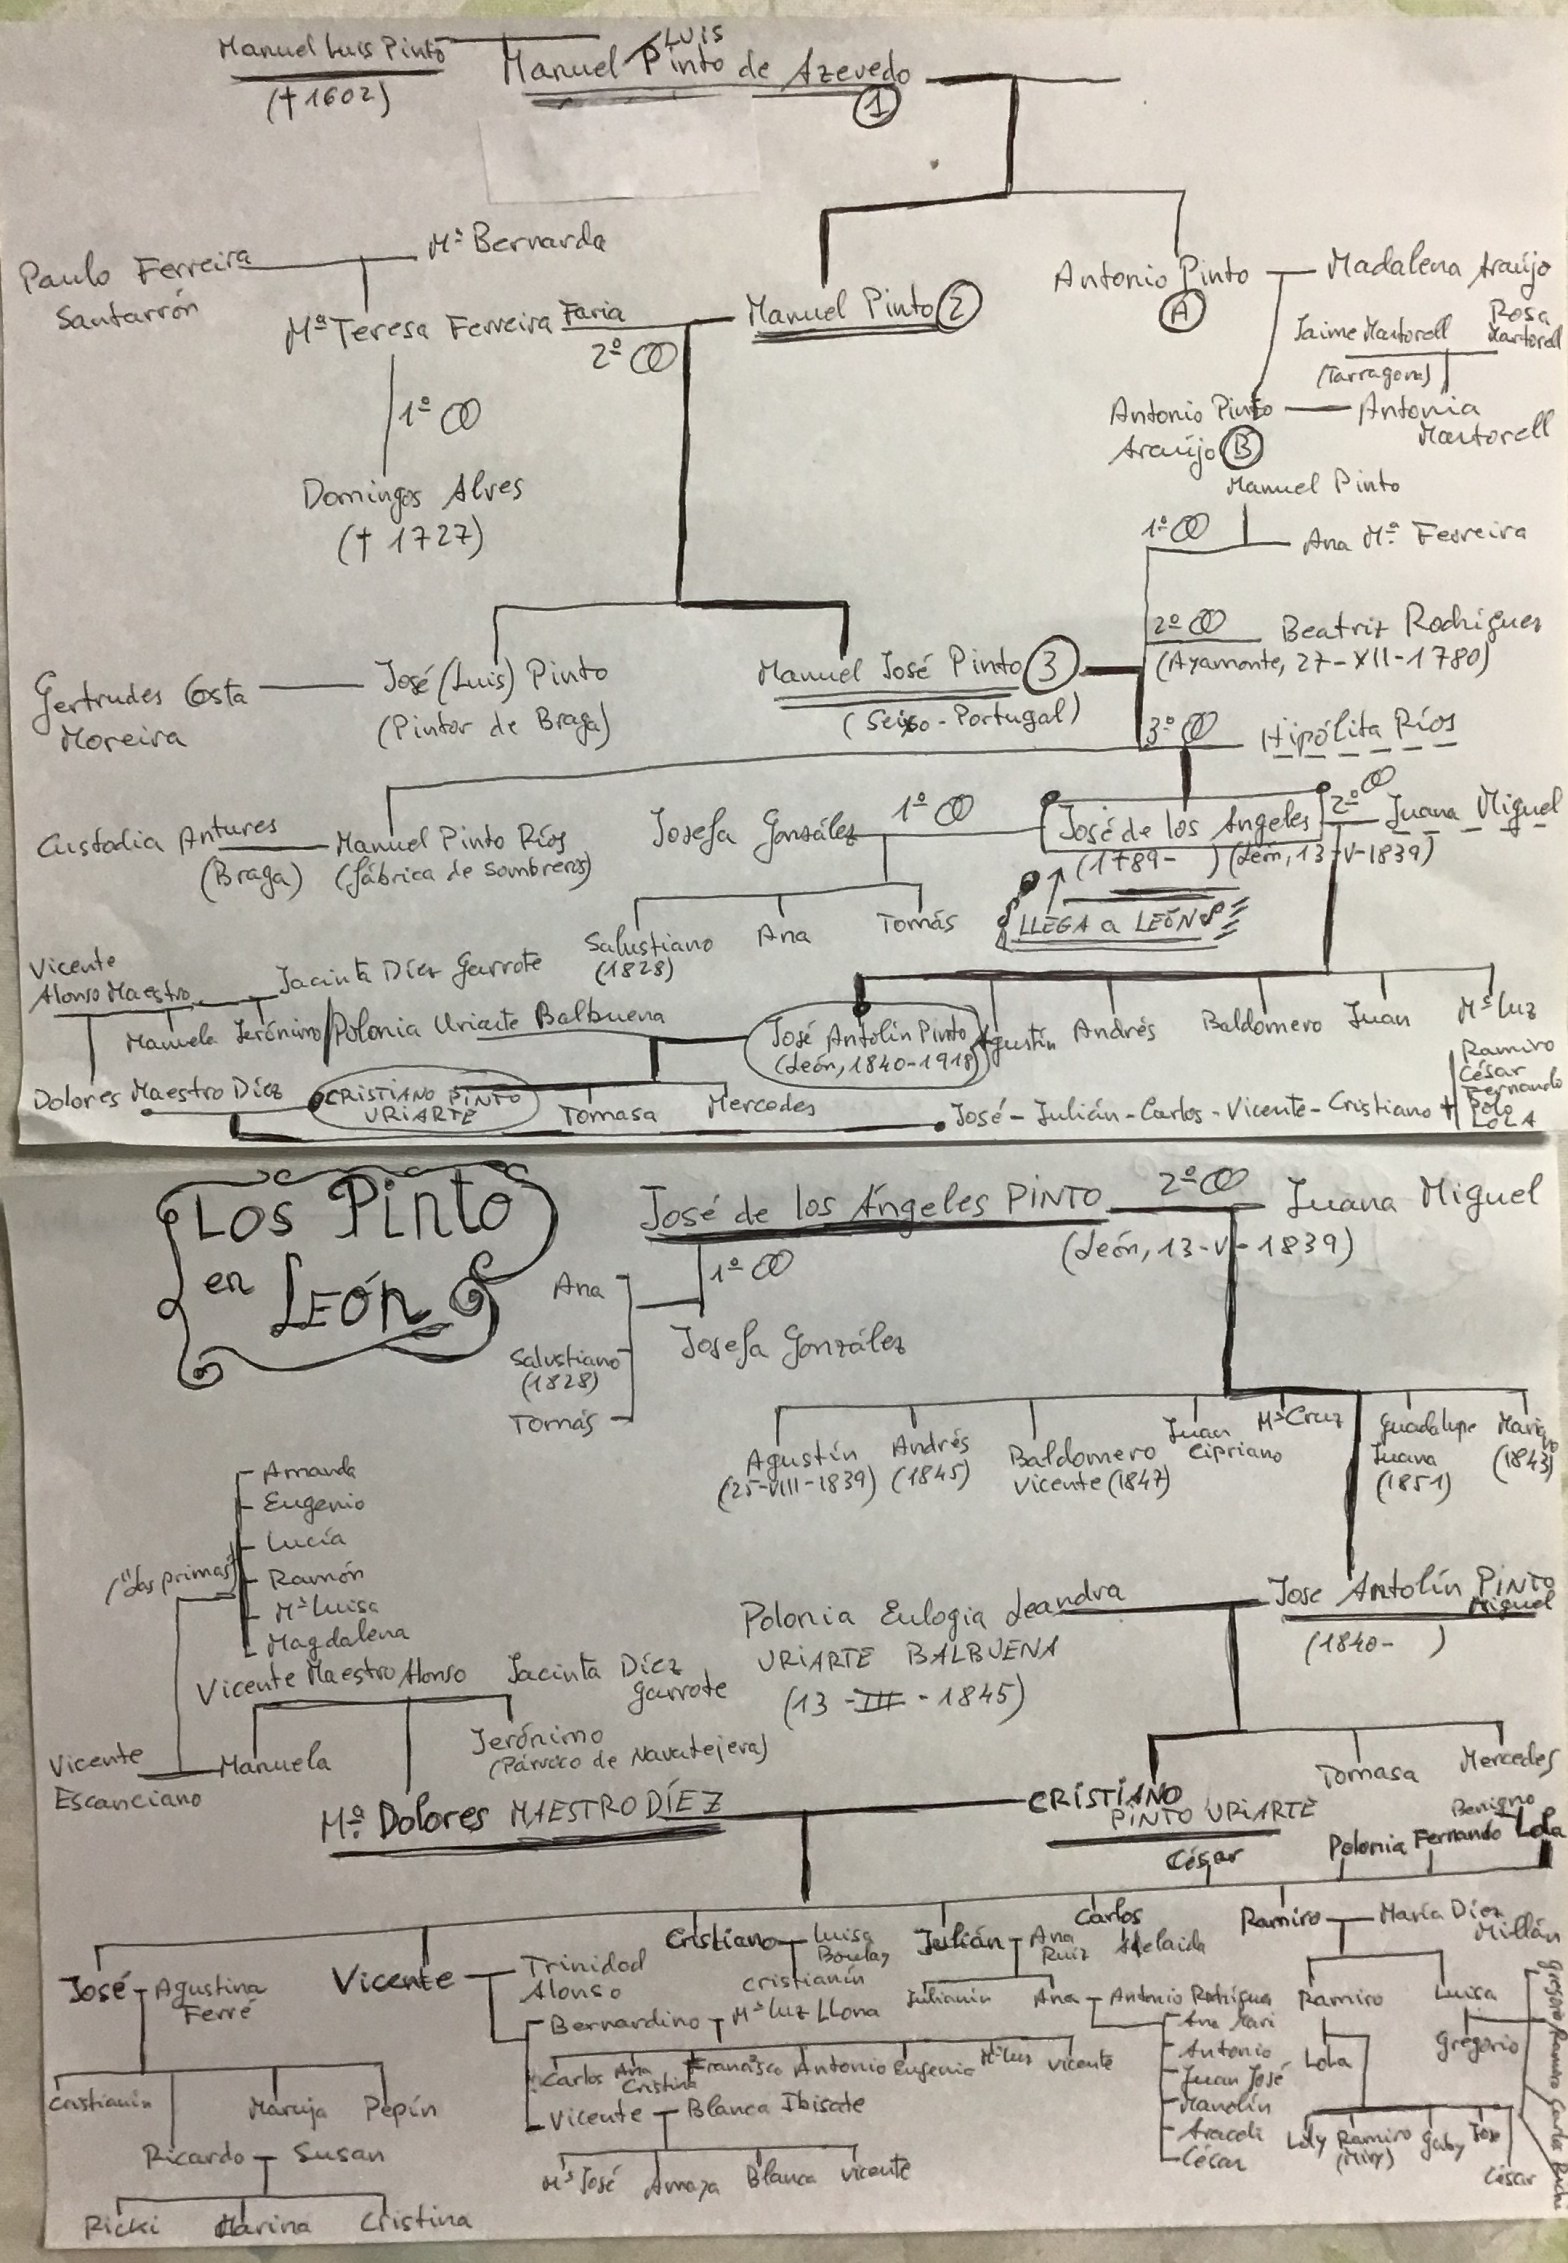 Manuel Luis Pinto
(† 1602)
LUIS
Manuel Pinto de Azevedo
1
Paulo Ferreira
Santarrón
Mª Bernarda
Mª Teresa Ferreira Faria
2º
Manuel Pinto 2
Antonio Pinto
A
Madalena Araújo
Jaime Martorell
(Tarragona)
Rosa
Martorell
1º
Antonio Pinto
Araújo B
Antonia
Martorell
Domingos Alves
(† 1727)
Manuel Pinto
1º
Ana Mª Ferreira
2º
Beatriz Rodríguez
(Ayamonte, 27-XII-1780)
Gertrudes Costa
Moreira
José (Luis) Pinto
(Pintor de Braga)
Manuel José Pinto 3
(Seixo - Portugal)
3º
Hipólita Ríos
Custodia Antures
(Braga)
Manuel Pinto Ríos
(fábrica de sombreros)
Josefa González
1º
José de los Angeles
(1789- )
2º
Juana Miguel
(León, 13-V-1839)
LLEGA a LEÓN
Salustiano
(1828)
Ana
Tomás
Vicente
Alonso Maestro
Jacinta Díez Garrote
Manuela
Jerónimo
Polonia Uriarte Balbuena
José Antolín Pinto
(León, 1840-1918)
Agustín
Andrés
Baldomero
Juan
Mª Luz
Dolores Maestro Díez
CRISTIANO PINTO
URIARTE
Tomasa
Mercedes
José - Julián - Carlos - Vicente - Cristiano +
Ramiro
César
Fernando
Polo
LOLA
LOS PINTO
en
LEÓN
José de los Ángeles PINTO
2º
Juana Miguel
(León, 13-V-1839)
1º
Ana
Salustiano
(1828)
Tomás
Josefa González
Agustín
(25-VIII-1839)
Andrés
(1845)
Baldomero
Vicente (1847)
Juan
Cipriano
Mª Cruz
Guadalupe
Juana
(1851)
(1843)
Amanda
Eugenio
Lucía
Ramón
Mª Luisa
Magdalena
("Las primas"
Polonia Eulogia Leandra
URIARTE BALBUENA
(13-III-1845)
Jose Antolín PINTO
Miguel
(1840- )
Vicente Maestro Alonso
Jacinta Díez
Garrote
Vicente
Escanciano
Manuela
Jerónimo
(Párroco de Navatejera)
Mª Dolores MAESTRO DÍEZ
CRISTIANO
PINTO URIARTE
Tomasa
Mercedes
César
Polonia
Fernando
Benigno
Lola
José
Agustina
Ferré
Vicente
Trinidad
Alonso
Cristiano
Luisa
Boulay
cristianín
Julián
Ana
Ruiz
Carlos
Adelaida
Ramiro
María Díez
Millán
Julianín
Ana
Antonio Rodríguez
Ramiro
Luisa
Gregorio
Bernardino
Mª Luz LLona
Carlos
Ana
Cristina
Francisco
Antonio
Eugenio
Mª Luz
Vicente
Ana Mari
Antonio
Juan José
Manolín
Araceli
César
Lola
Gregorio Ramiro Carlos
Cristianín
Maruja
Pepín
Ricardo
Susan
Vicente
Blanca Ibisate
Lily
Ramiro
(Miry)
Gaby
César
Mª José
Amaya
Blanca
Vicente
Ricki
Marina
Cristina